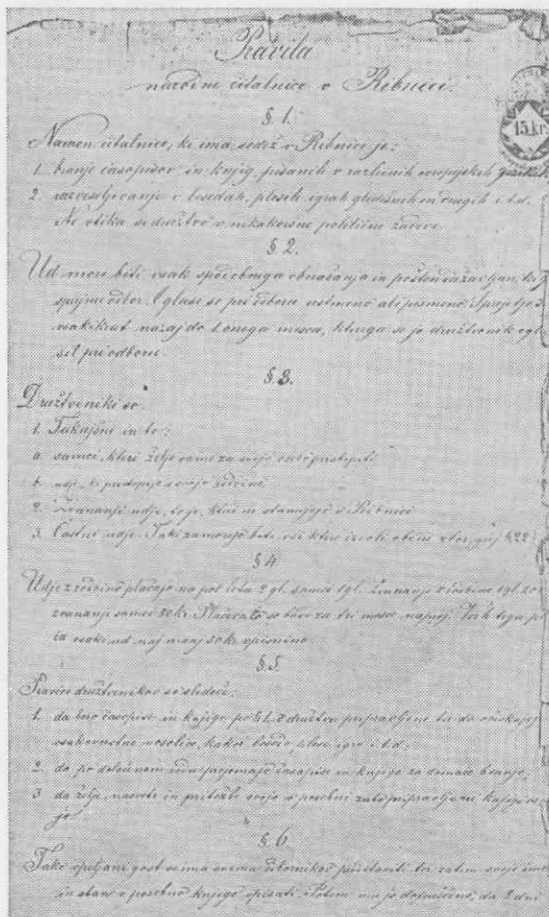 Pravila
narodne čitalnice v Ribnici.
§ 1.
Namen čitalnice, ki ima sedež v Ribnici je:
1. branje časopisov in knjig, pisanih v različnih evropejskih
15 kr
2. razveseljevanje v besedah, plesih igrah glediščnih in drugih i.t.d.
Ne vtika se družtvo v nikakoršne politične zadeve.
§. 2.
Ud more biti vsak spodobnega obnašanja in pošten
sprejme odbor. Oglasi se pri odboru ustmeno ali pismeno.
vsakikrat nazaj do 1. onega mesca, kterega se je družtvenik ogla-
sil pri odboru.
§. 3.
Družtveniki so:
1. Tukajšni in to:
a. samci, kteri žele samo za svojo osebo pristopiti
b. udje, ki pristopijo s svojo družino
2. Zvunanji udje, to je, kteri ne stanujejo v Ribnici
3. Častni udje. Taki zamorejo biti, vsi ktere izvoli občni zbor, glej §. 22.
§ 4.
Udje z družino plačajo na pol leta 2 gl. samci 1 gl. Zvunanji z družino 1 gl.
zvunanji samci 50 kr. Plačati se more za tri mesce naprej. Verh tega
vsaki ud naj manj 50 kr. vpisnine.
§. 5.
Pravice družtvenikov so sledeče:
1. da bero časopise in knjige po § 1. v družtvu pripravljene ter da
vsakovrstne veselice, kakor besede plese, igre i.t.d.
2. da po določenem redu prejemajo časopise in knjige za domače branje,
3. da želje, nasvete in pritožbe svoje v posebni zato pripravljeni knjigi
§. 6.
Tako vpeljani gost se ima enemu odbornikov predstaviti ter zatem svoje ime
in stan v posebno knjigo vpisati. Potem mu je dovoljeno, da 8 dni